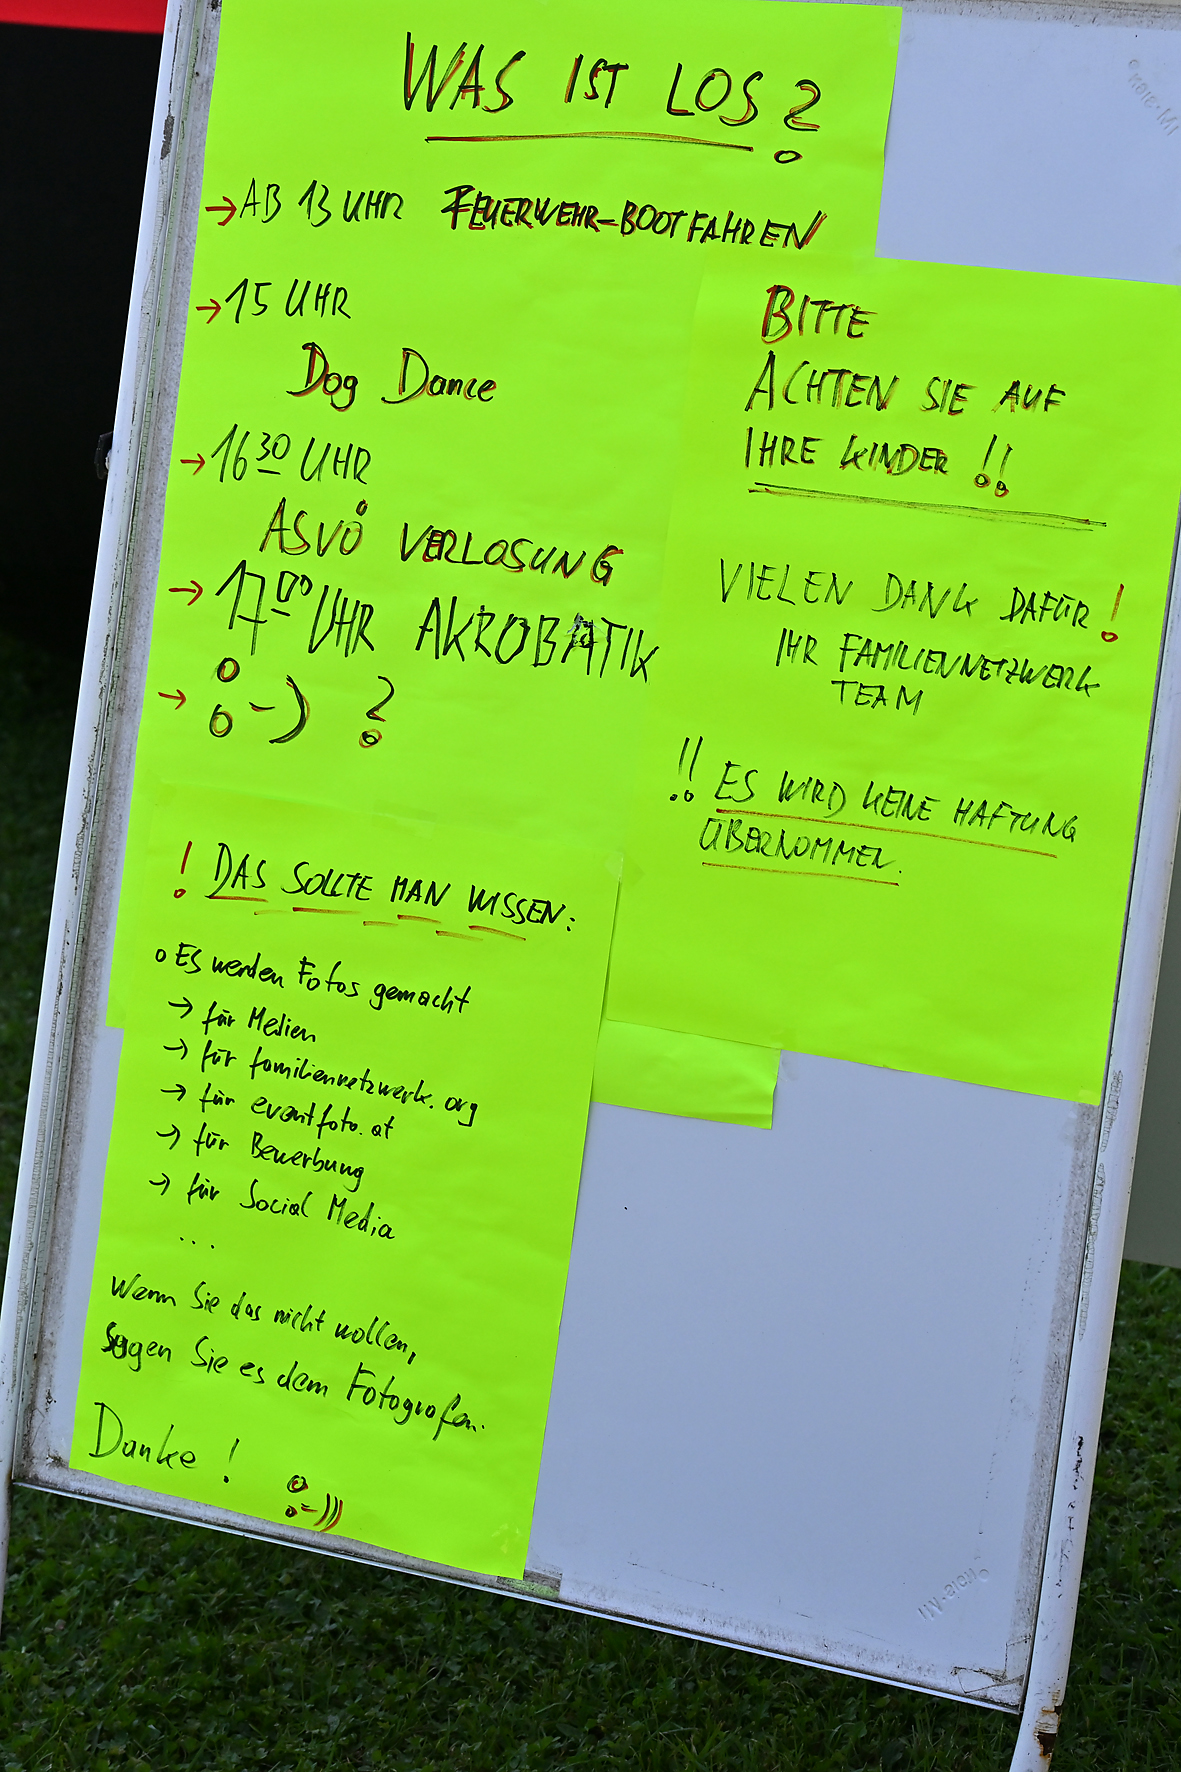 WAS IST LOS?
→ AB 13 UHR FEUERWEHR-BOOTFAHREN
→ 15 UHR
Dog Dance
→ 16³⁰ UHR
ASVÖ VERLOSUNG
→ 17⁰⁰ UHR AKROBATIK
→ :-) ?
! DAS SOLLTE MAN WISSEN:
o Es werden Fotos gemacht
→ für Medien
→ für familiennetzwerk.org
→ für eventfoto.at
→ für Bewerbung
→ für Social Media
...
Wenn Sie das nicht wollen,
sagen Sie es dem Fotografen.
Danke !
:-)))
BITTE
ACHTEN SIE AUF
IHRE KINDER !!
VIELEN DANK DAFÜR!
IHR FAMILIENNETZWERK
TEAM
!! ES WIRD KEINE HAFTUNG
ÜBERNOMMEN.